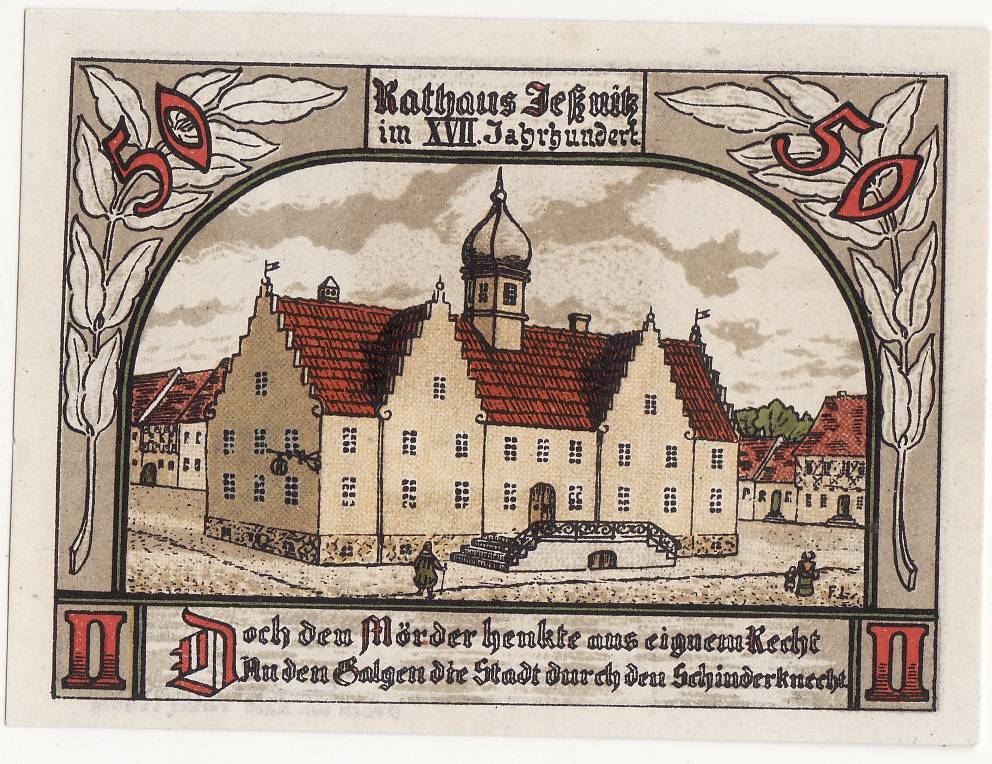 50
Rathaus Jeßnitz
im XVII. Jahrhundert.
50
F.L.
II
Doch den Mörder henkte aus eignem Recht
An den Galgen die Stadt durch den Schinderknecht.
II